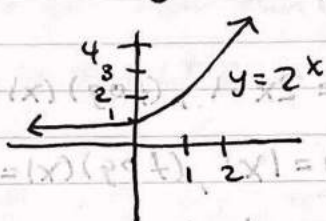 4
3
2
1
y=2^x
1 2